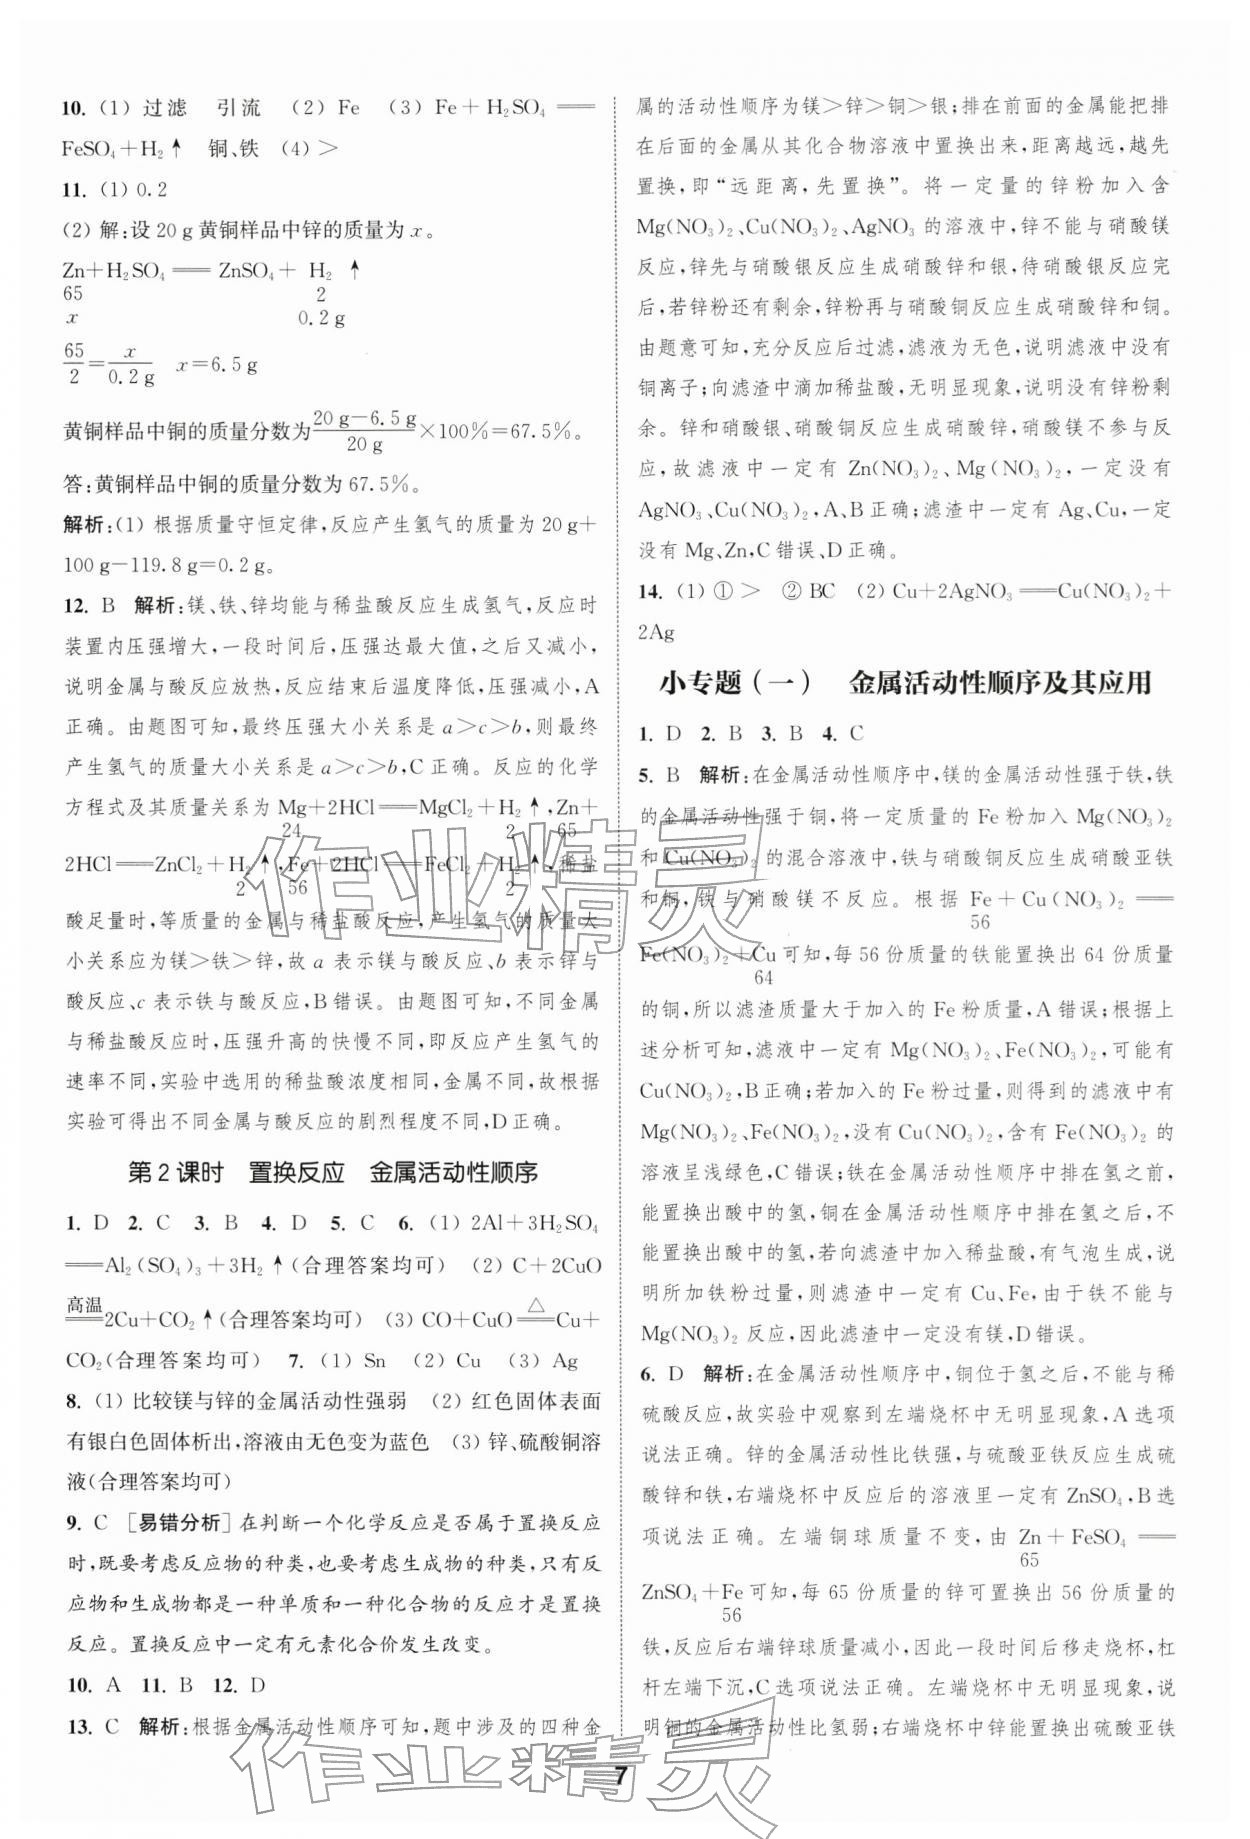 10. (1) 过滤　引流　(2) Fe　(3) Fe＋H₂SO₄ ══
FeSO₄＋H₂↑　铜、铁　(4) ＞
11. (1) 0.2
(2) 解:设20 g黄铜样品中锌的质量为x。
Zn＋H₂SO₄══ZnSO₄＋ H₂ ↑
65　2
x　0.2 g
65/2＝x/0.2 g　x＝6.5 g
黄铜样品中铜的质量分数为(20 g－6.5 g)/20 g×100%＝67.5%。
答:黄铜样品中铜的质量分数为67.5%。
解析:(1) 根据质量守恒定律,反应产生氢气的质量为20 g＋
100 g－119.8 g＝0.2 g。
12. B　解析:镁、铁、锌均能与稀盐酸反应生成氢气,反应时
装置内压强增大,一段时间后,压强达最大值,之后又减小,
说明金属与酸反应放热,反应结束后温度降低,压强减小,A
正确。由题图可知,最终压强大小关系是a＞c＞b,则最终
产生氢气的质量大小关系是a＞c＞b,C正确。反应的化学
方程式及其质量关系为Mg＋2HCl══MgCl₂＋H₂↑,Zn＋
24　2　65
2HCl══ZnCl₂＋H₂↑,Fe＋2HCl══FeCl₂＋H₂↑,稀盐
2　56　2
酸足量时,等质量的金属与稀盐酸反应,产生氢气的质量大
小关系应为镁＞铁＞锌,故a表示镁与酸反应、b表示锌与
酸反应、c表示铁与酸反应,B错误。由题图可知,不同金属
与稀盐酸反应时,压强升高的快慢不同,即反应产生氢气的
速率不同,实验中选用的稀盐酸浓度相同,金属不同,故根据
实验可得出不同金属与酸反应的剧烈程度不同,D正确。
第2课时　置换反应　金属活动性顺序
1. D　2. C　3. B　4. D　5. C　6. (1) 2Al＋3H₂SO₄
══Al₂(SO₄)₃＋3H₂↑(合理答案均可)　(2) C＋2CuO
高温
══2Cu＋CO₂↑(合理答案均可)　(3) CO＋CuO══△Cu＋
CO₂(合理答案均可)　7. (1) Sn　(2) Cu　(3) Ag
8. (1) 比较镁与锌的金属活动性强弱　(2) 红色固体表面
有银白色固体析出,溶液由无色变为蓝色　(3) 锌、硫酸铜溶
液(合理答案均可)
9. C　[易错分析]在判断一个化学反应是否属于置换反应
时,既要考虑反应物的种类,也要考虑生成物的种类,只有反
应物和生成物都是一种单质和一种化合物的反应才是置换
反应。置换反应中一定有元素化合价发生改变。
10. A　11. B　12. D
13. C　解析:根据金属活动性顺序可知,题中涉及的四种金
属的活动性顺序为镁＞锌＞铜＞银;排在前面的金属能把排
在后面的金属从其化合物溶液中置换出来,距离越远,越先
置换,即“远距离,先置换”。将一定量的锌粉加入含
Mg(NO₃)₂、Cu(NO₃)₂、AgNO₃的溶液中,锌不能与硝酸镁
反应,锌先与硝酸银反应生成硝酸锌和银,待硝酸银反应完
后,若锌粉还有剩余,锌粉再与硝酸铜反应生成硝酸锌和铜。
由题意可知,充分反应后过滤,滤液为无色,说明滤液中没有
铜离子;向滤渣中滴加稀盐酸,无明显现象,说明没有锌粉剩
余。锌和硝酸银、硝酸铜反应生成硝酸锌,硝酸镁不参与反
应,故滤液中一定有Zn(NO₃)₂、Mg(NO₃)₂,一定没有
AgNO₃、Cu(NO₃)₂,A、B正确;滤渣中一定有Ag、Cu,一定
没有Mg、Zn,C错误、D正确。
14. (1) ① ＞　② BC　(2) Cu＋2AgNO₃══Cu(NO₃)₂＋
2Ag
小专题(一)　金属活动性顺序及其应用
1. D　2. B　3. B　4. C
5. B　解析:在金属活动性顺序中,镁的金属活动性强于铁,铁
的金属活动性强于铜,将一定质量的Fe粉加入Mg(NO₃)₂
和Cu(NO₃)₂的混合溶液中,铁与硝酸铜反应生成硝酸亚铁
和铜,铁与硝酸镁不反应。根据Fe＋Cu(NO₃)₂══
56
Fe(NO₃)₂＋Cu可知,每56份质量的铁能置换出64份质量
64
的铜,所以滤渣质量大于加入的Fe粉质量,A错误;根据上
述分析可知,滤液中一定有Mg(NO₃)₂、Fe(NO₃)₂,可能有
Cu(NO₃)₂,B正确;若加入的Fe粉过量,则得到的滤液中有
Mg(NO₃)₂、Fe(NO₃)₂,没有Cu(NO₃)₂,含有Fe(NO₃)₂的
溶液呈浅绿色,C错误;铁在金属活动性顺序中排在氢之前,
能置换出酸中的氢,铜在金属活动性顺序中排在氢之后,不
能置换出酸中的氢,若向滤渣中加入稀盐酸,有气泡生成,说
明所加铁粉过量,则滤渣中一定有Cu、Fe,由于铁不能与
Mg(NO₃)₂反应,因此滤渣中一定没有镁,D错误。
6. D　解析:在金属活动性顺序中,铜位于氢之后,不能与稀
硫酸反应,故实验中观察到左端烧杯中无明显现象,A选项
说法正确。锌的金属活动性比铁强,与硫酸亚铁反应生成硫
酸锌和铁,右端烧杯中反应后的溶液里一定有ZnSO₄,B选
项说法正确。左端铜球质量不变,由Zn＋FeSO₄══
65
ZnSO₄＋Fe可知,每65份质量的锌可置换出56份质量的
56
铁,反应后右端锌球质量减小,因此一段时间后移走烧杯,杠
杆左端下沉,C选项说法正确。左端烧杯中无明显现象,说
明铜的金属活动性比氢弱;右端烧杯中锌能置换出硫酸亚铁
7
作业精灵
作业精灵